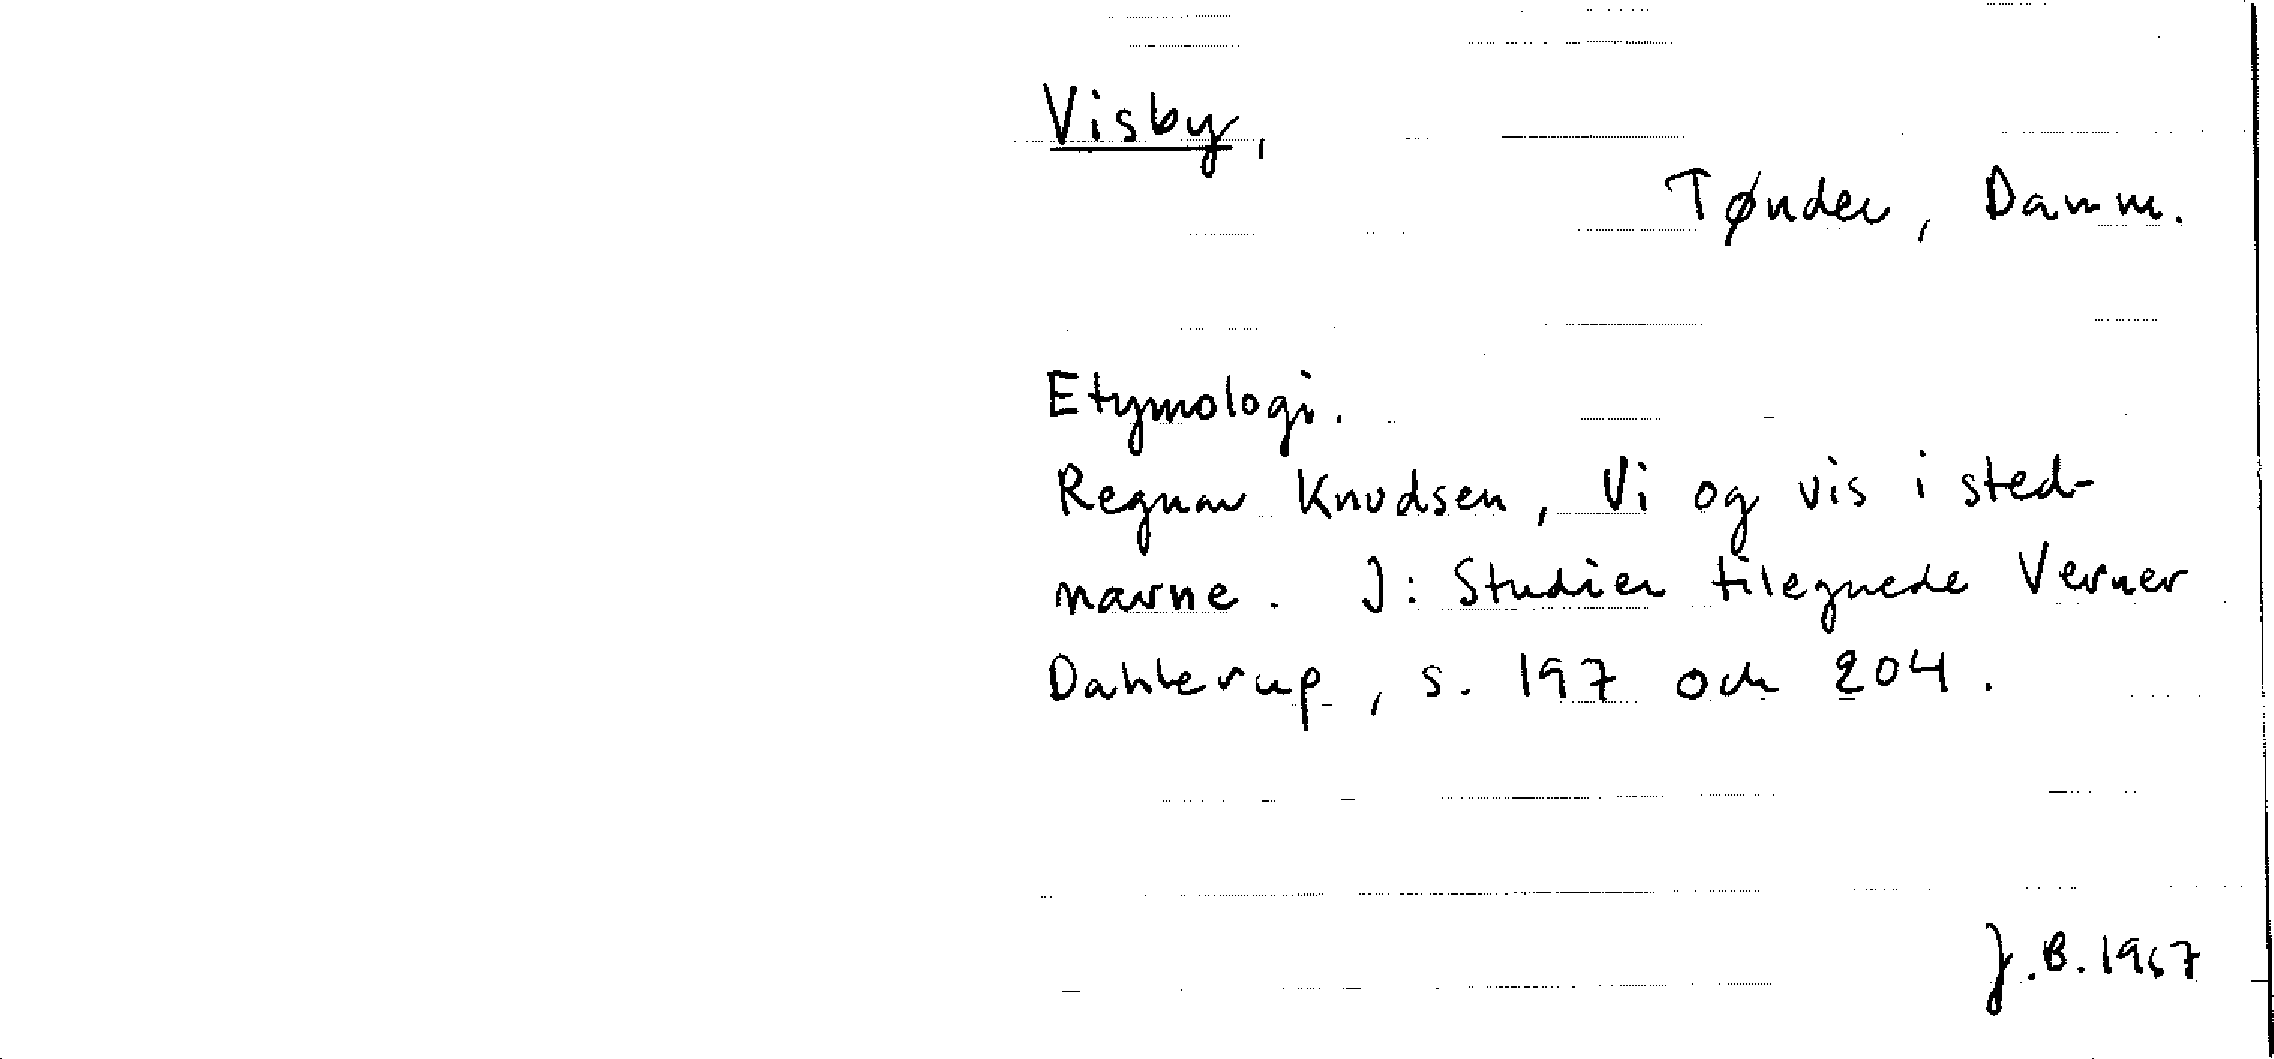 Visby,
Tønder, Danm.
Etymologi.
Regnar Knudsen, Vi og vis i sted-
navne. I: Studier tilegnede Verner
Dahlerup, s. 197 och 204.
J.B. 1967